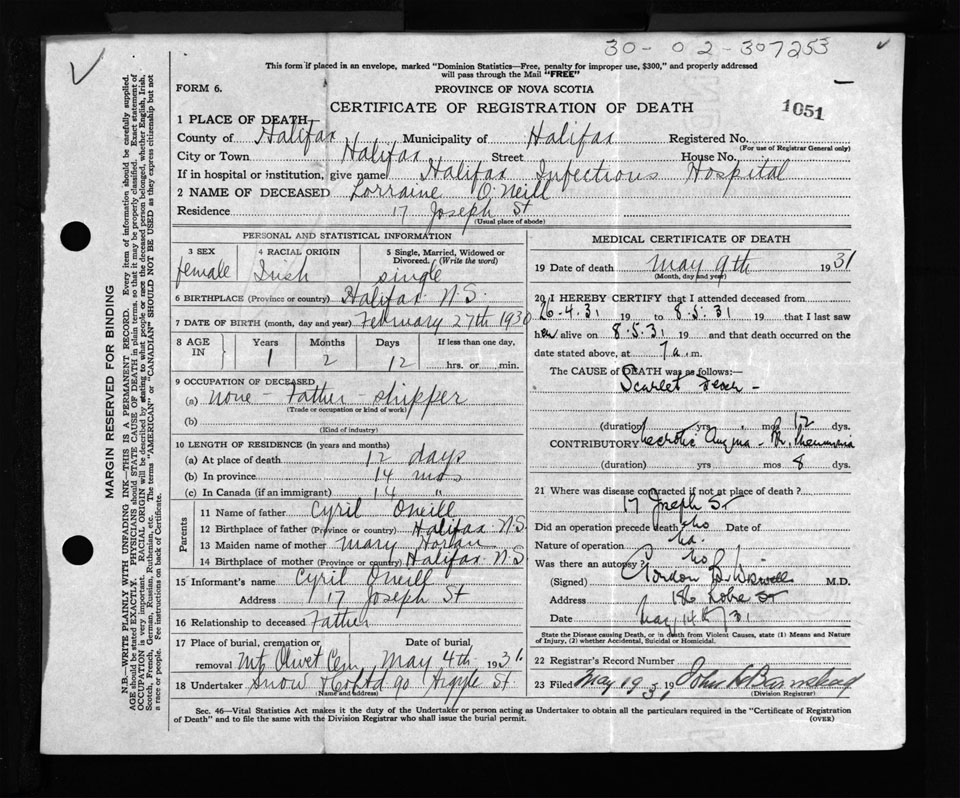 30-02-307253
This form if placed in an envelope, marked "Dominion Statistics—Free, penalty for improper use, $300," and properly addressed
will pass through the Mail "FREE"
FORM 6.
PROVINCE OF NOVA SCOTIA
CERTIFICATE OF REGISTRATION OF DEATH
1051
1 PLACE OF DEATH
County of Halifax Municipality of Halifax Registered No.
(For use of Registrar General only)
City or Town Halifax Street House No.
If in hospital or institution, give name Halifax Infectious Hospital
2 NAME OF DECEASED Lorraine O'Neill
Residence 17 Joseph St
(Usual place of abode)
PERSONAL AND STATISTICAL INFORMATION
3 SEX 4 RACIAL ORIGIN 5 Single, Married, Widowed or
Divorced. (Write the word)
female Irish single
6 BIRTHPLACE (Province or country) Halifax N.S.
7 DATE OF BIRTH (month, day and year) February 27th 1930
8 AGE IN Years Months Days If less than one day,
1 2 12 hrs. or min.
9 OCCUPATION OF DECEASED
(a) none - Father - shipper
(Trade or occupation or kind of work)
(b)
(Kind of industry)
10 LENGTH OF RESIDENCE (in years and months)
(a) At place of death 12 days
(b) In province 14 mos
(c) In Canada (if an immigrant) 14 "
Parents
11 Name of father Cyril Oneill
12 Birthplace of father (Province or country) Halifax N.S.
13 Maiden name of mother Mary
14 Birthplace of mother (Province or country) Halifax N.S.
15 Informant's name Cyril Oneill
Address 17 Joseph St
16 Relationship to deceased Father
17 Place of burial, cremation or Date of burial,
removal Mt Olivet Cem, May 4th 1931
18 Undertaker Snow & Co Ltd 90 Argyle St
(Name and address)
MEDICAL CERTIFICATE OF DEATH
19 Date of death May 9th 1931
(Month, day and year)
20 I HEREBY CERTIFY that I attended deceased from
26.4.31 19 to 8.5.31 19 that I last saw
her alive on 8.5.31 19 and that death occurred on the
date stated above, at 7 a.m.
The CAUSE OF DEATH was as follows:—
Scarlet Fever -
(duration) yrs mos 12 dys.
CONTRIBUTORY Angina - Br. Pneumonia
(duration) yrs mos 8 dys.
21 Where was disease contracted if not at place of death?
17 Joseph St
Did an operation precede death no Date of
Nature of operation
Was there an autopsy? no
(Signed) Gordon B. M.D.
Address 186 St
Date May 14th/31
State the Disease causing Death, or in death from Violent Causes, state (1) Means and Nature
of Injury, (2) whether Accidental, Suicidal or Homicidal.
22 Registrar's Record Number
23 Filed May 19 31 19 John Barnstead
(Division Registrar)
Sec. 46—Vital Statistics Act makes it the duty of the Undertaker or person acting as Undertaker to obtain all the particulars required in the "Certificate of Registration
of Death" and to file the same with the Division Registrar who shall issue the burial permit.
(OVER)
MARGIN RESERVED FOR BINDING
N.B.—WRITE PLAINLY WITH UNFADING INK—THIS IS A PERMANENT RECORD. Every item of information should be carefully supplied.
AGE should be stated EXACTLY. PHYSICIANS should STATE CAUSE OF DEATH in plain terms, so that it may be properly classified. Exact statement of
OCCUPATION is very important. RACIAL ORIGIN will be described by stating to what people or race the deceased person belonged, whether English, Irish,
Scotch, French, German, Russian, Ruthenian, etc. The terms "AMERICAN" or "CANADIAN" SHOULD NOT BE USED as they express citizenship but not
a race or people. See instructions on back of Certificate.